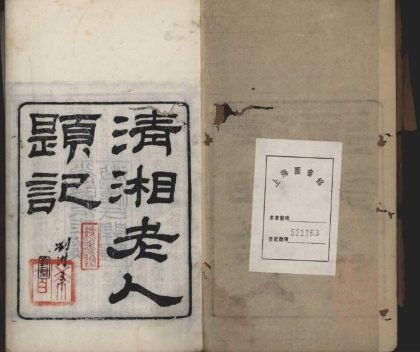 清湘老人
題記
上海圖書館
索書號碼
登記號碼 521163